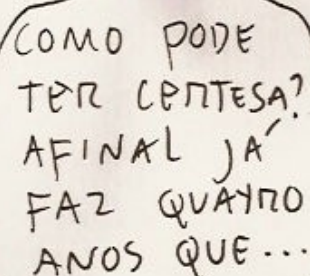 COMO PODE
TER CERTESA?
AFINAL JÁ
FAZ QUAYRO
ANOS QUE...